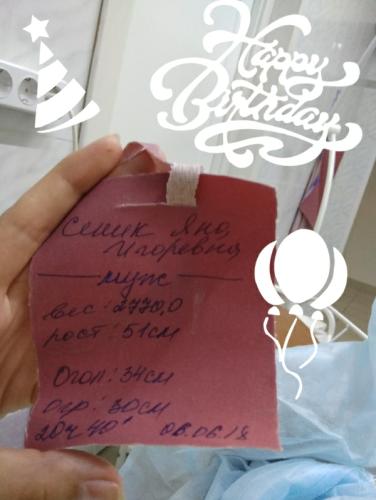 Happy
Birthday
Семик Яна
Игоревна
муж
вес: 2770,0
рост: 51см
Огол: 34см
Огр: 30см
20ч 40' 06.06.18